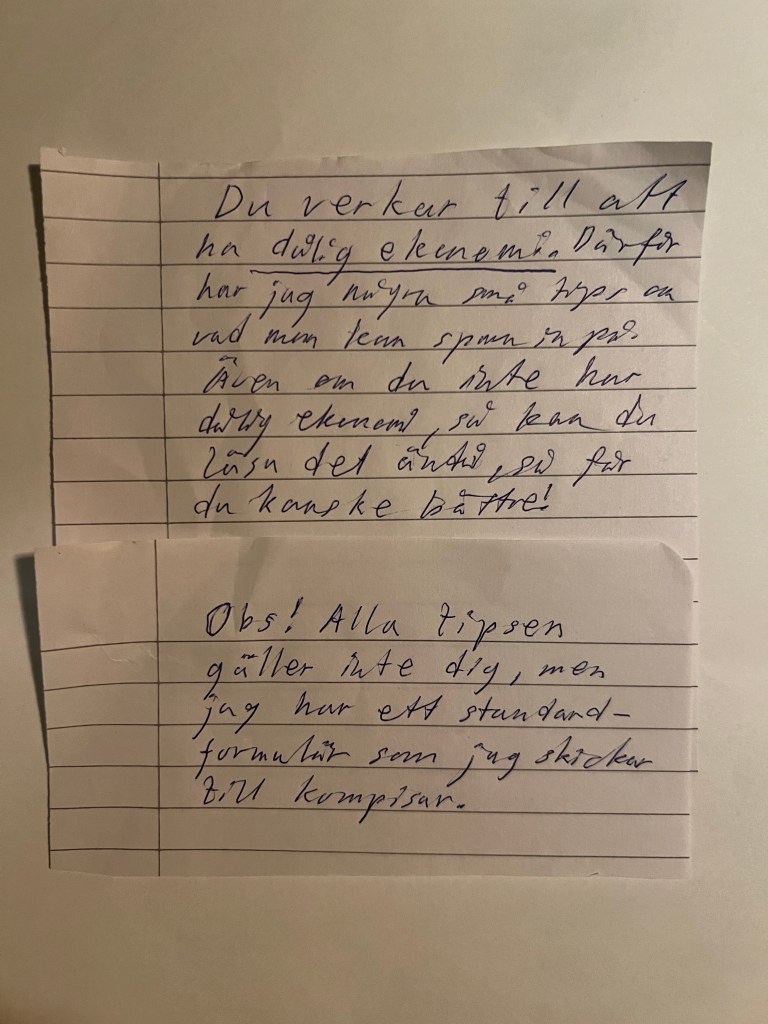 Du verkar till att
ha dålig ekonomi. Därför
har jag några små tips om
vad man kan spara in på.
Även om du inte har
dålig ekonomi, så kan du
läsa det ändå, så får
du kanske bättre!
Obs! Alla tipsen
gäller inte dig, men
jag har ett standard-
formulär som jag skickar
till kompisar.